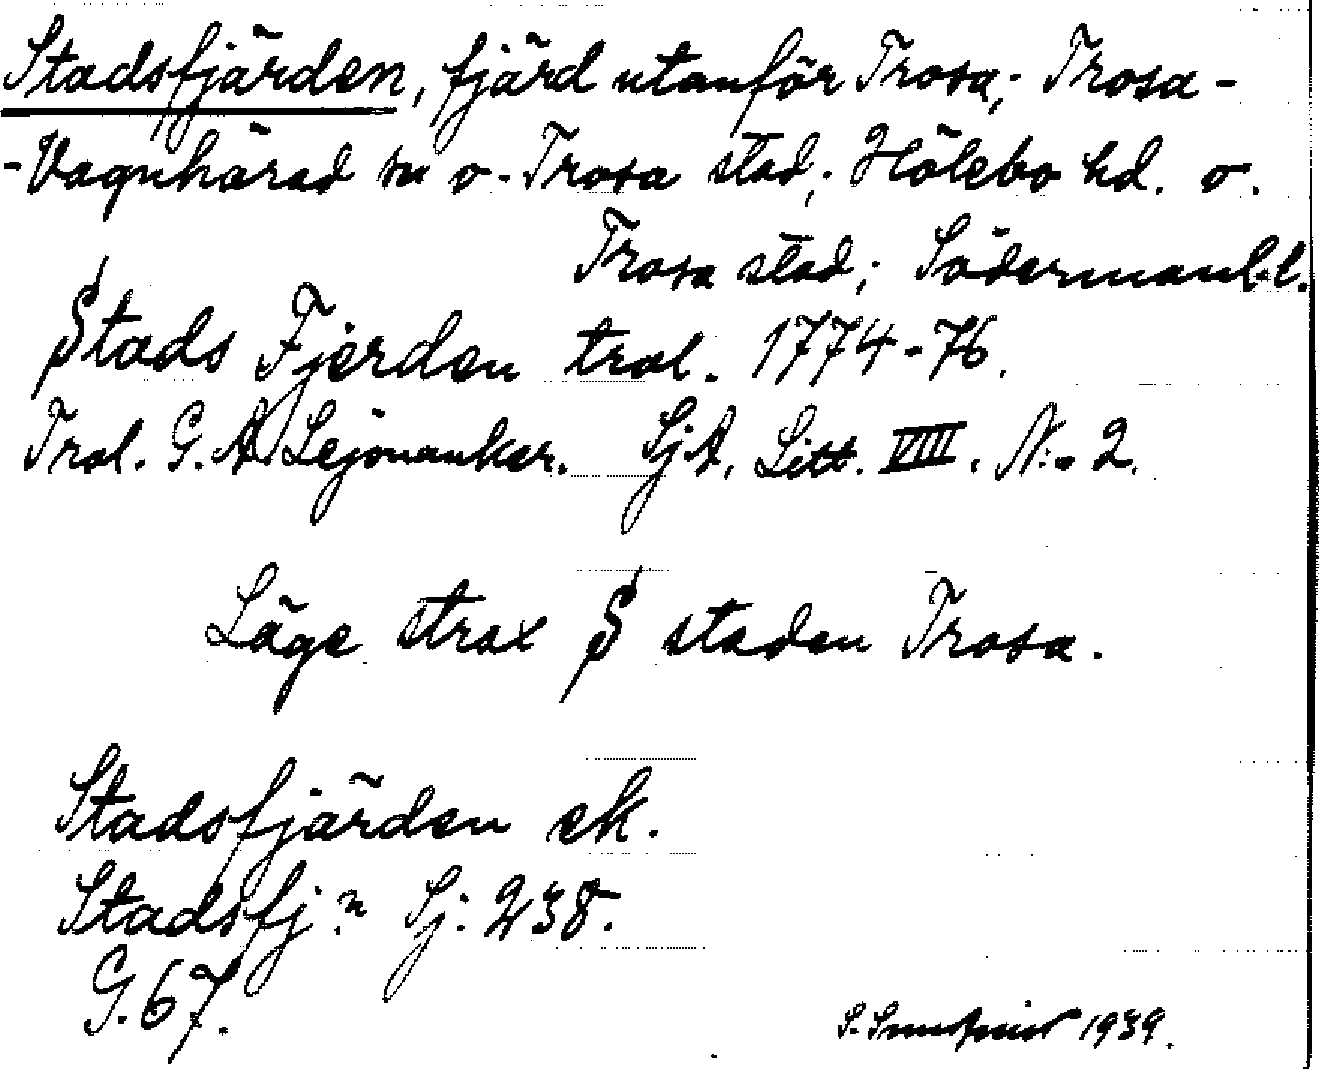 Stadsfjärden, fjärd utanför Trosa; Trosa-
-Vagnhärad sn o. Trosa stad; Hölebo hd. o.
Trosa stad; Södermanl. l.
Stads Fjerden tral. 1774-76.
Tral. G. A. Lejonanker. SjA. Litt. VIII. N:o 2.
Läge strax S staden Trosa.
Stadsfjärden ek.
Stadsfj:n Sj. 238.
G. 67.
S. 1939.